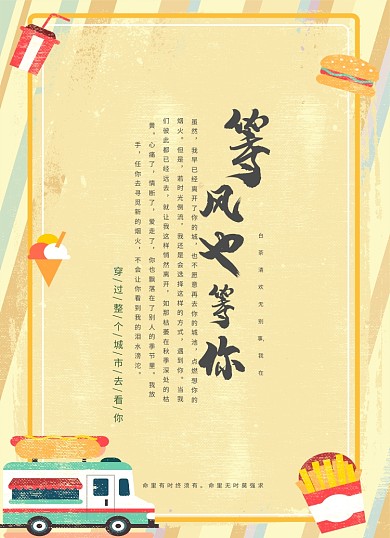 白茶清欢无别事，我在
等风也等你
虽然，我早已经离开了你的城，也不愿意再去你的城池，点燃想你的
烟火。但是，若时光倒流，我还是会选择这样的方式，遇到你。当我
们彼此都已经远去，就让我这样悄然离开，如那枯萎在秋季深处的枯
黄。心痛了，情断了，爱走了，你也飘落在了别人的季节里。我放
手，任你去寻觅新的烟火，不会让你看到我的泪水滂沱。
穿/过/整/个/城/市/去/看/你
命里有时终须有。命里无时莫强求